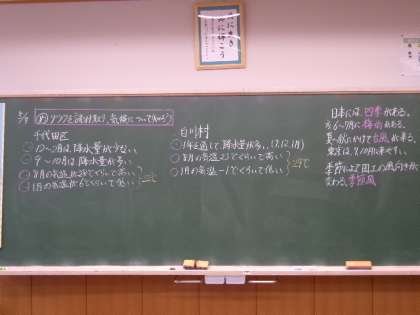 グラフを読み取り、気候について知ろう
千代田区
12〜2月は、降水量が少ない。
9〜10月は、降水量が多い。
8月の気温が
1月の気温が6℃くらいで低い
白川村
1年を通して、降水量が多い。(7,12,1月)
8月の気温23℃くらいで高い
1月の気温-1℃くらいで低い
日本には、四季がある。
6〜7月に梅雨がある。
夏〜秋にかけて台風が来る。
東京は、9,10月に来やすい。
季節によって
変わる。季節風